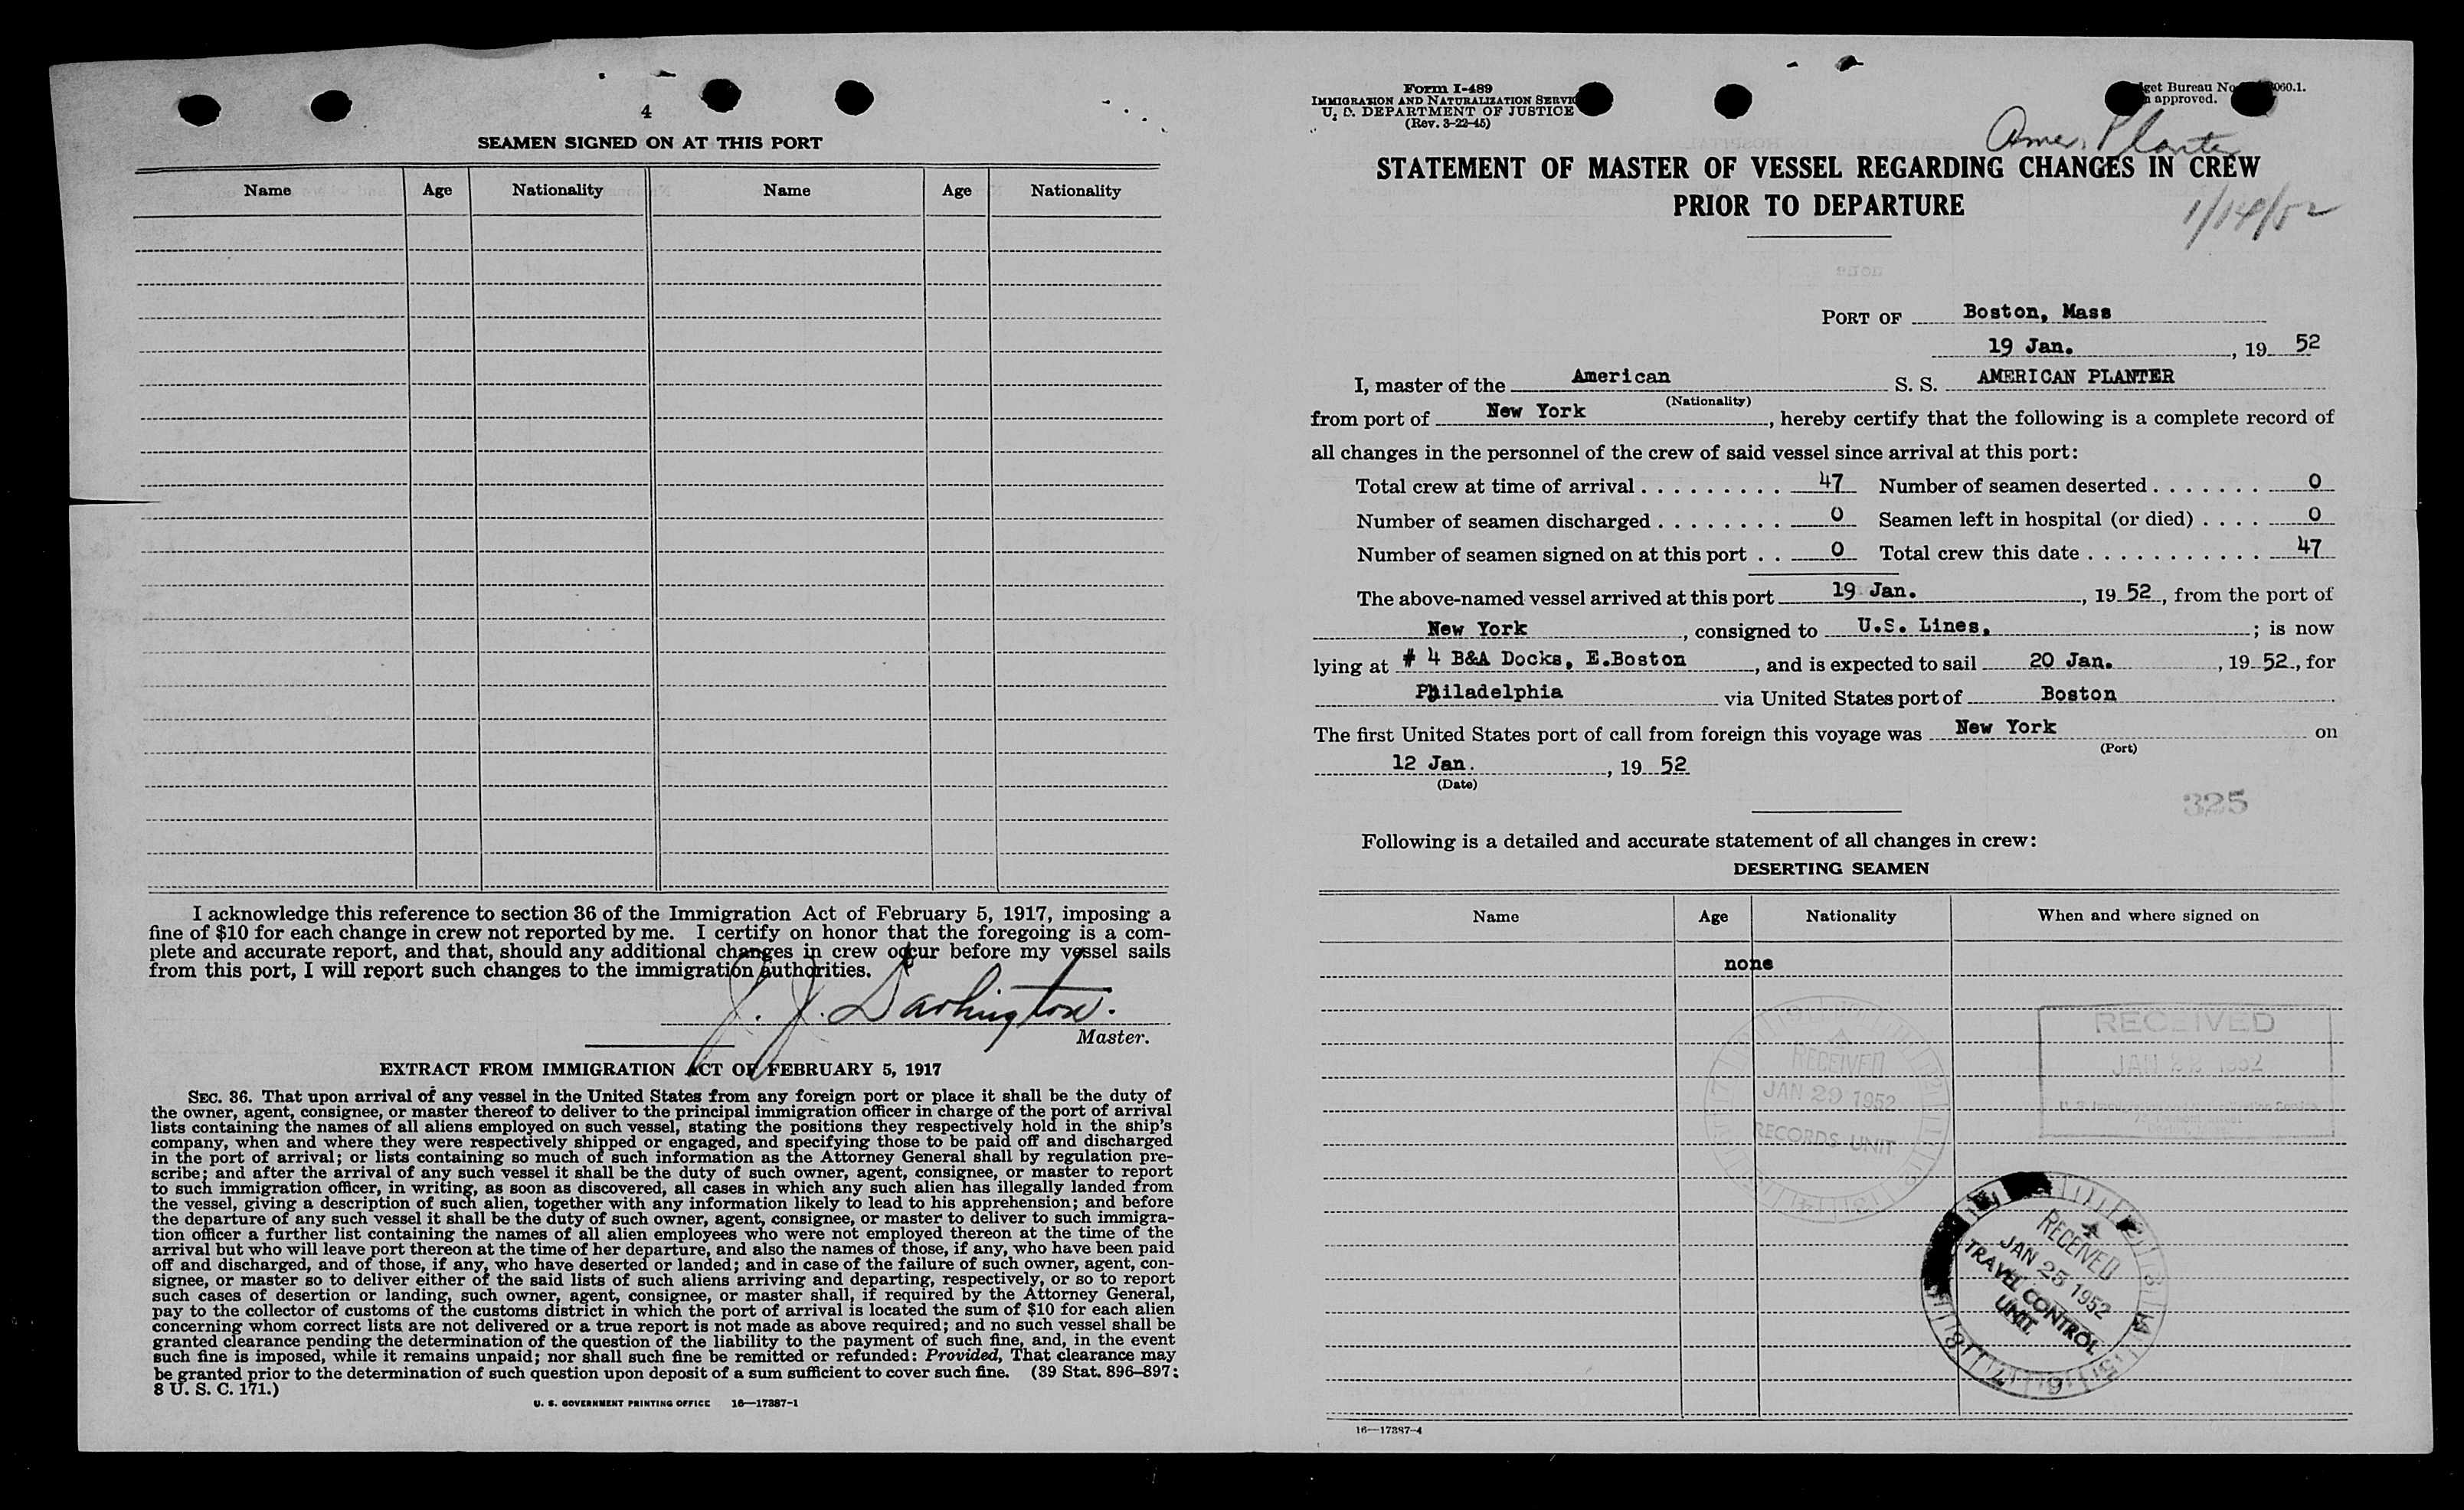 4
SEAMEN SIGNED ON AT THIS PORT
Name Age Nationality Name Age Nationality
I acknowledge this reference to section 36 of the Immigration Act of February 5, 1917, imposing a
fine of $10 for each change in crew not reported by me. I certify on honor that the foregoing is a com-
plete and accurate report, and that, should any additional changes in crew occur before my vessel sails
from this port, I will report such changes to the immigration authorities.
J. J. Darlington.
Master.
EXTRACT FROM IMMIGRATION ACT OF FEBRUARY 5, 1917
SEC. 36. That upon arrival of any vessel in the United States from any foreign port or place it shall be the duty of
the owner, agent, consignee, or master thereof to deliver to the principal immigration officer in charge of the port of arrival
lists containing the names of all aliens employed on such vessel, stating the positions they respectively hold in the ship's
company, when and where they were respectively shipped or engaged, and specifying those to be paid off and discharged
in the port of arrival; or lists containing so much of such information as the Attorney General shall by regulation pre-
scribe; and after the arrival of any such vessel it shall be the duty of such owner, agent, consignee, or master to report
to such immigration officer, in writing, as soon as discovered, all cases in which any such alien has illegally landed from
the vessel, giving a description of such alien, together with any information likely to lead to his apprehension; and before
the departure of any such vessel it shall be the duty of such owner, agent, consignee, or master to deliver to such immigra-
tion officer a further list containing the names of all alien employees who were not employed thereon at the time of the
arrival but who will leave port thereon at the time of her departure, and also the names of those, if any, who have been paid
off and discharged, and of those, if any, who have deserted or landed; and in case of the failure of such owner, agent, con-
signee, or master so to deliver either of the said lists of such aliens arriving and departing, respectively, or so to report
such cases of desertion or landing, such owner, agent, consignee, or master shall, if required by the Attorney General,
pay to the collector of customs of the customs district in which the port of arrival is located the sum of $10 for each alien
concerning whom correct lists are not delivered or a true report is not made as above required; and no such vessel shall be
granted clearance pending the determination of the question of the liability to the payment of such fine, and, in the event
such fine is imposed, while it remains unpaid; nor shall such fine be remitted or refunded: Provided, That clearance may
be granted prior to the determination of such question upon deposit of a sum sufficient to cover such fine. (39 Stat. 896–897;
8 U. S. C. 171.)
U. S. GOVERNMENT PRINTING OFFICE 16—17387-1
Form I-489
IMMIGRATION AND NATURALIZATION
U. S. DEPARTMENT OF JUSTICE
(Rev. 3-22-45)
Bureau No. 060.1.
approved.
Amer. Planter
STATEMENT OF MASTER OF VESSEL REGARDING CHANGES IN CREW
PRIOR TO DEPARTURE
1/14/52
PORT OF Boston, Mass
19 Jan., 19 52
I, master of the American S. S. AMERICAN PLANTER
(Nationality)
from port of New York, hereby certify that the following is a complete record of
all changes in the personnel of the crew of said vessel since arrival at this port:
Total crew at time of arrival . . . . . . . . . 47 Number of seamen deserted . . . . . . . 0
Number of seamen discharged . . . . . . . . 0 Seamen left in hospital (or died) . . . . 0
Number of seamen signed on at this port . . 0 Total crew this date . . . . . . . . . . . 47
The above-named vessel arrived at this port 19 Jan., 19 52, from the port of
New York, consigned to U.S. Lines, ; is now
lying at # 4 B&A Docks, E.Boston, and is expected to sail 20 Jan., 19 52, for
Philadelphia via United States port of Boston
The first United States port of call from foreign this voyage was New York on
(Port)
12 Jan., 19 52
(Date)
325
Following is a detailed and accurate statement of all changes in crew:
DESERTING SEAMEN
Name Age Nationality When and where signed on
none
RECEIVED
JAN 22 1952
RECEIVED
JAN 29 1952
RECORDS UNIT
RECEIVED
JAN 25 1952
TRAVEL CONTROL
UNIT
16—17387-4